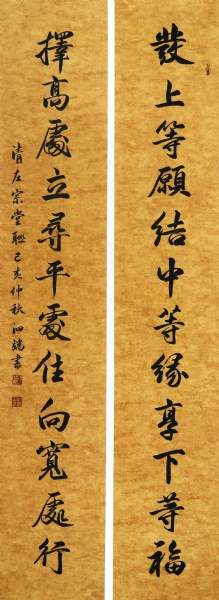 發上等願結中等緣享下等福
擇高處立尋平處住向寬處行
清左宗棠聯己亥仲秋泗鏡書